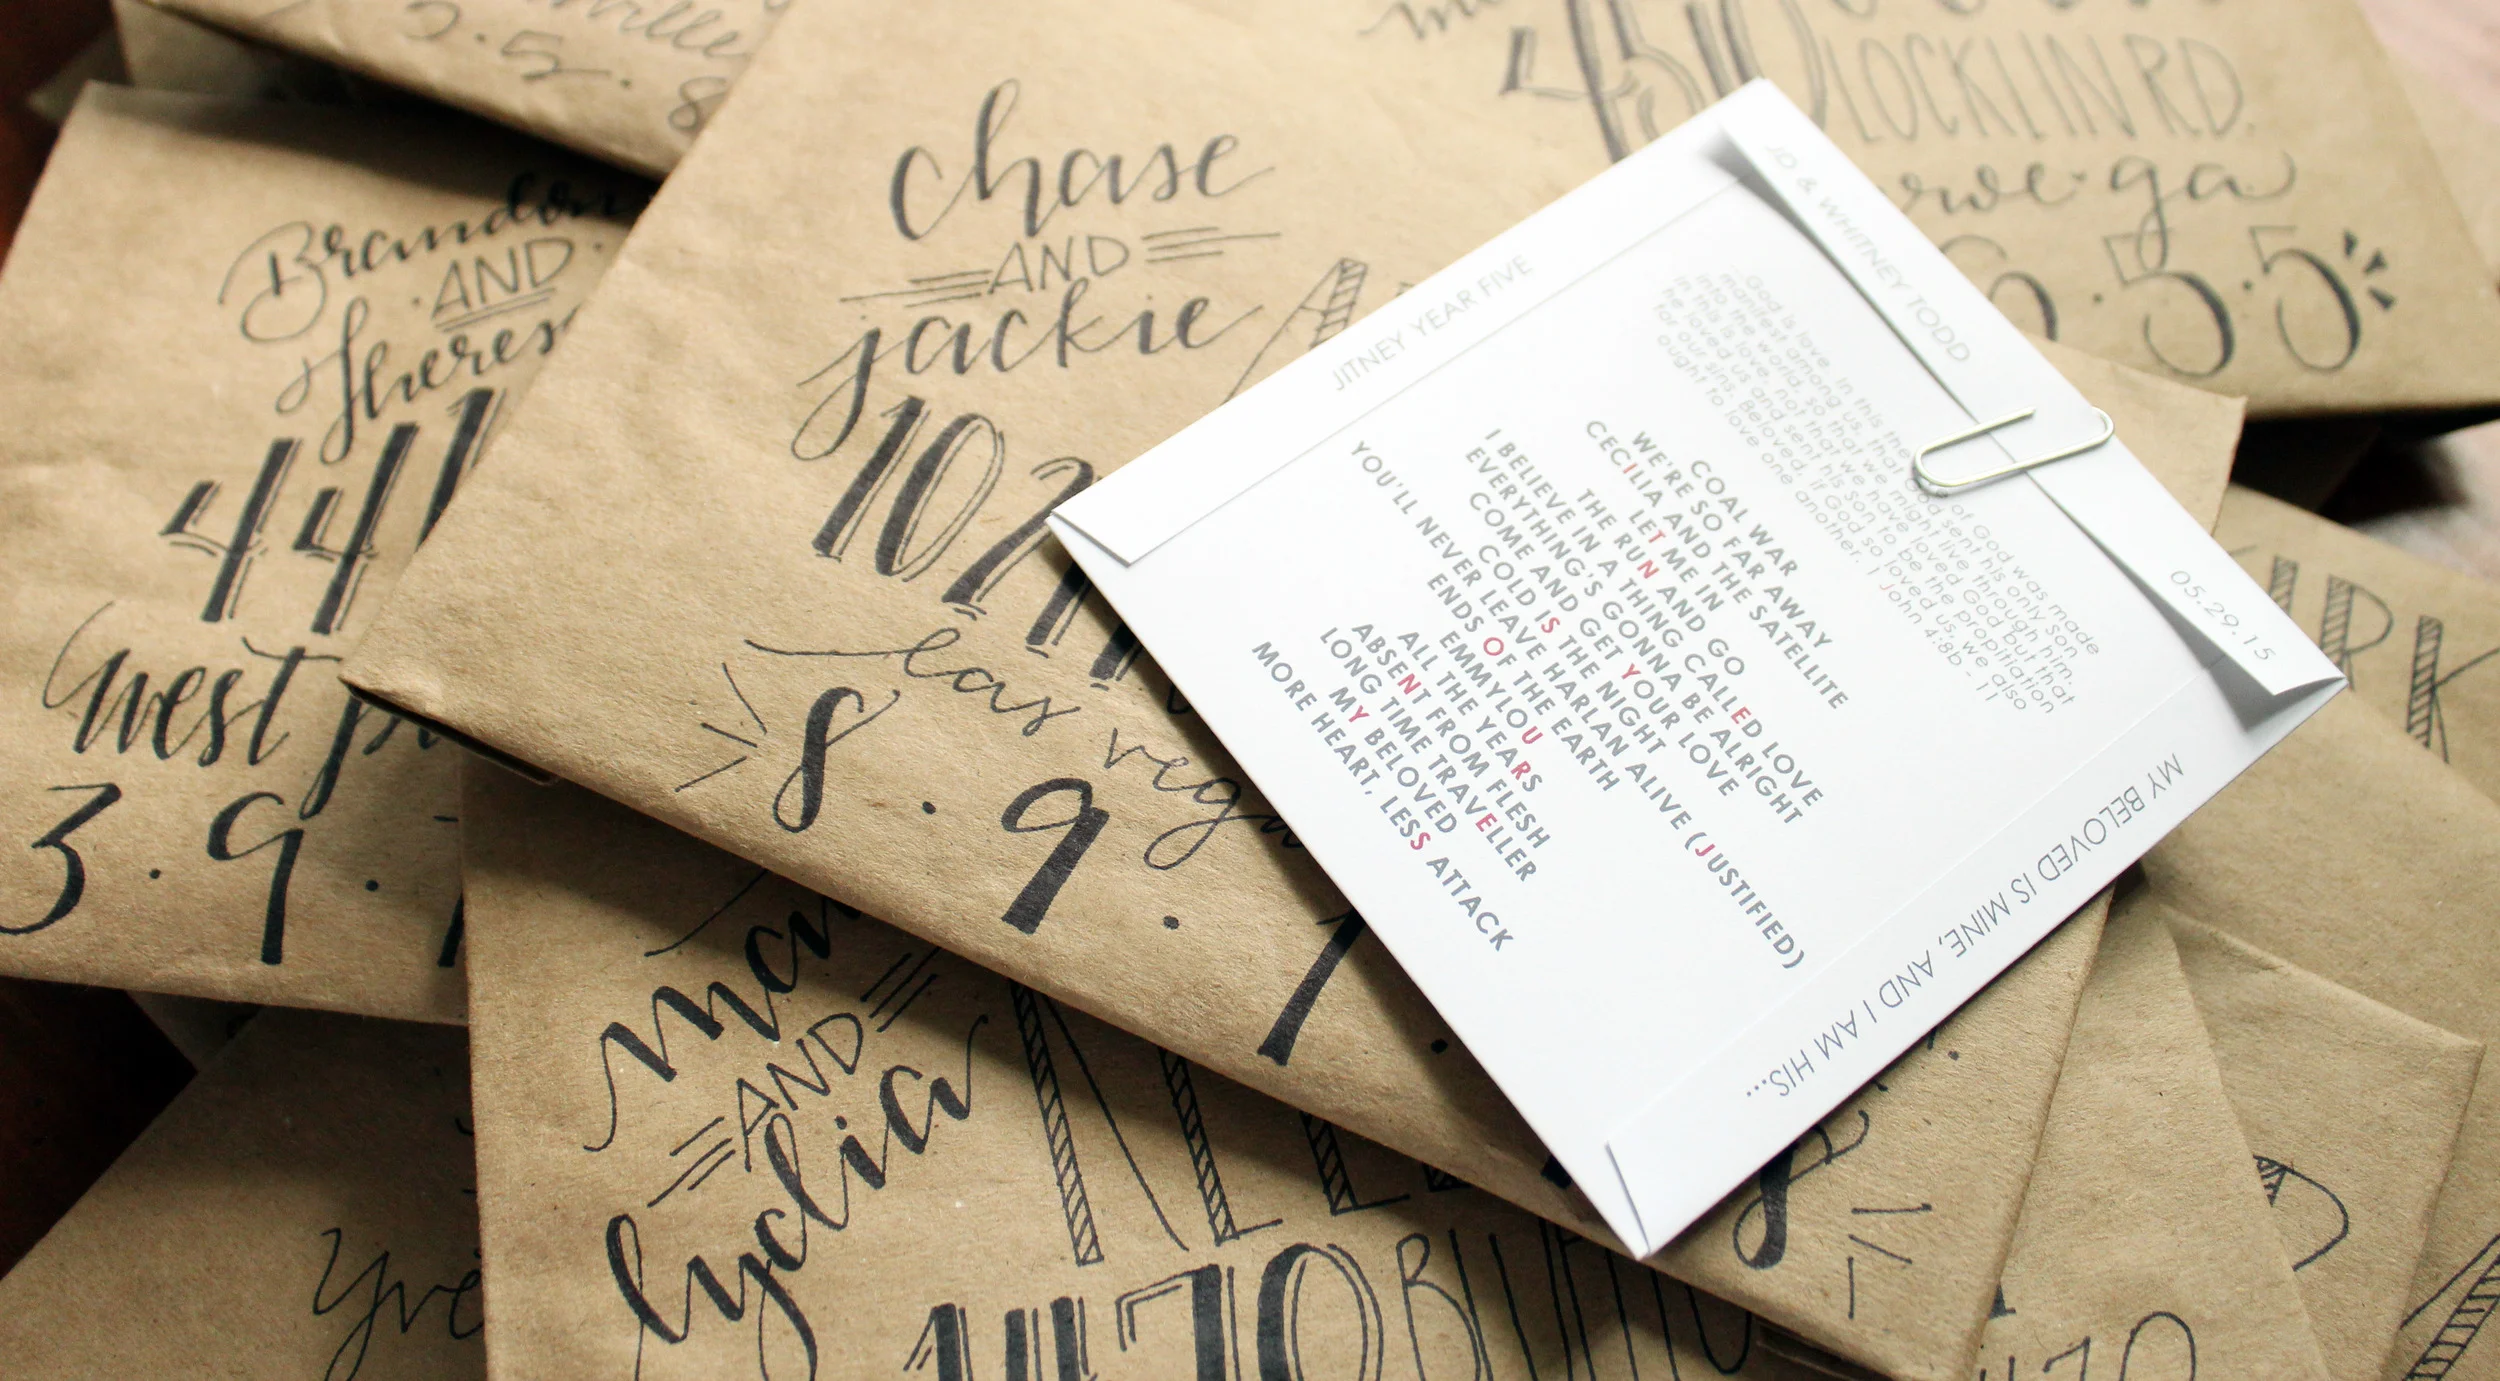 ville
5.5.8
450
LOCKLIN RD.
5.5
Brandon
AND
441
west
3.9.
chase
AND
jackie
10
las vega
8.9.1
JITNEY YEAR FIVE
JD & WHITNEY TODD
05.29.15
...God is love. In this the love of God was made
manifest among us, that God sent his only son
into the world, so that we might live through him.
In this is love, not that we have loved God but that
he loved us and sent his son to be the propitiation
for our sins. Beloved, if God so loved us, we also
ought to love one another. 1 John 4:8b - 11
COAL WAR
WE'RE SO FAR AWAY
CECILIA AND THE SATELLITE
LET ME IN
THE RUN AND GO
I BELIEVE IN A THING CALLED LOVE
EVERYTHING'S GONNA BE ALRIGHT
COME AND GET YOUR LOVE
COLD IS THE NIGHT
YOU'LL NEVER LEAVE HARLAN ALIVE (JUSTIFIED)
ENDS OF THE EARTH
EMMYLOU
ALL THE YEARS
ABSENT FROM FLESH
LONG TIME TRAVELLER
MY BELOVED
MORE HEART, LESS ATTACK
MY BELOVED IS MINE, AND I AM HIS...
AND
lydia
1170